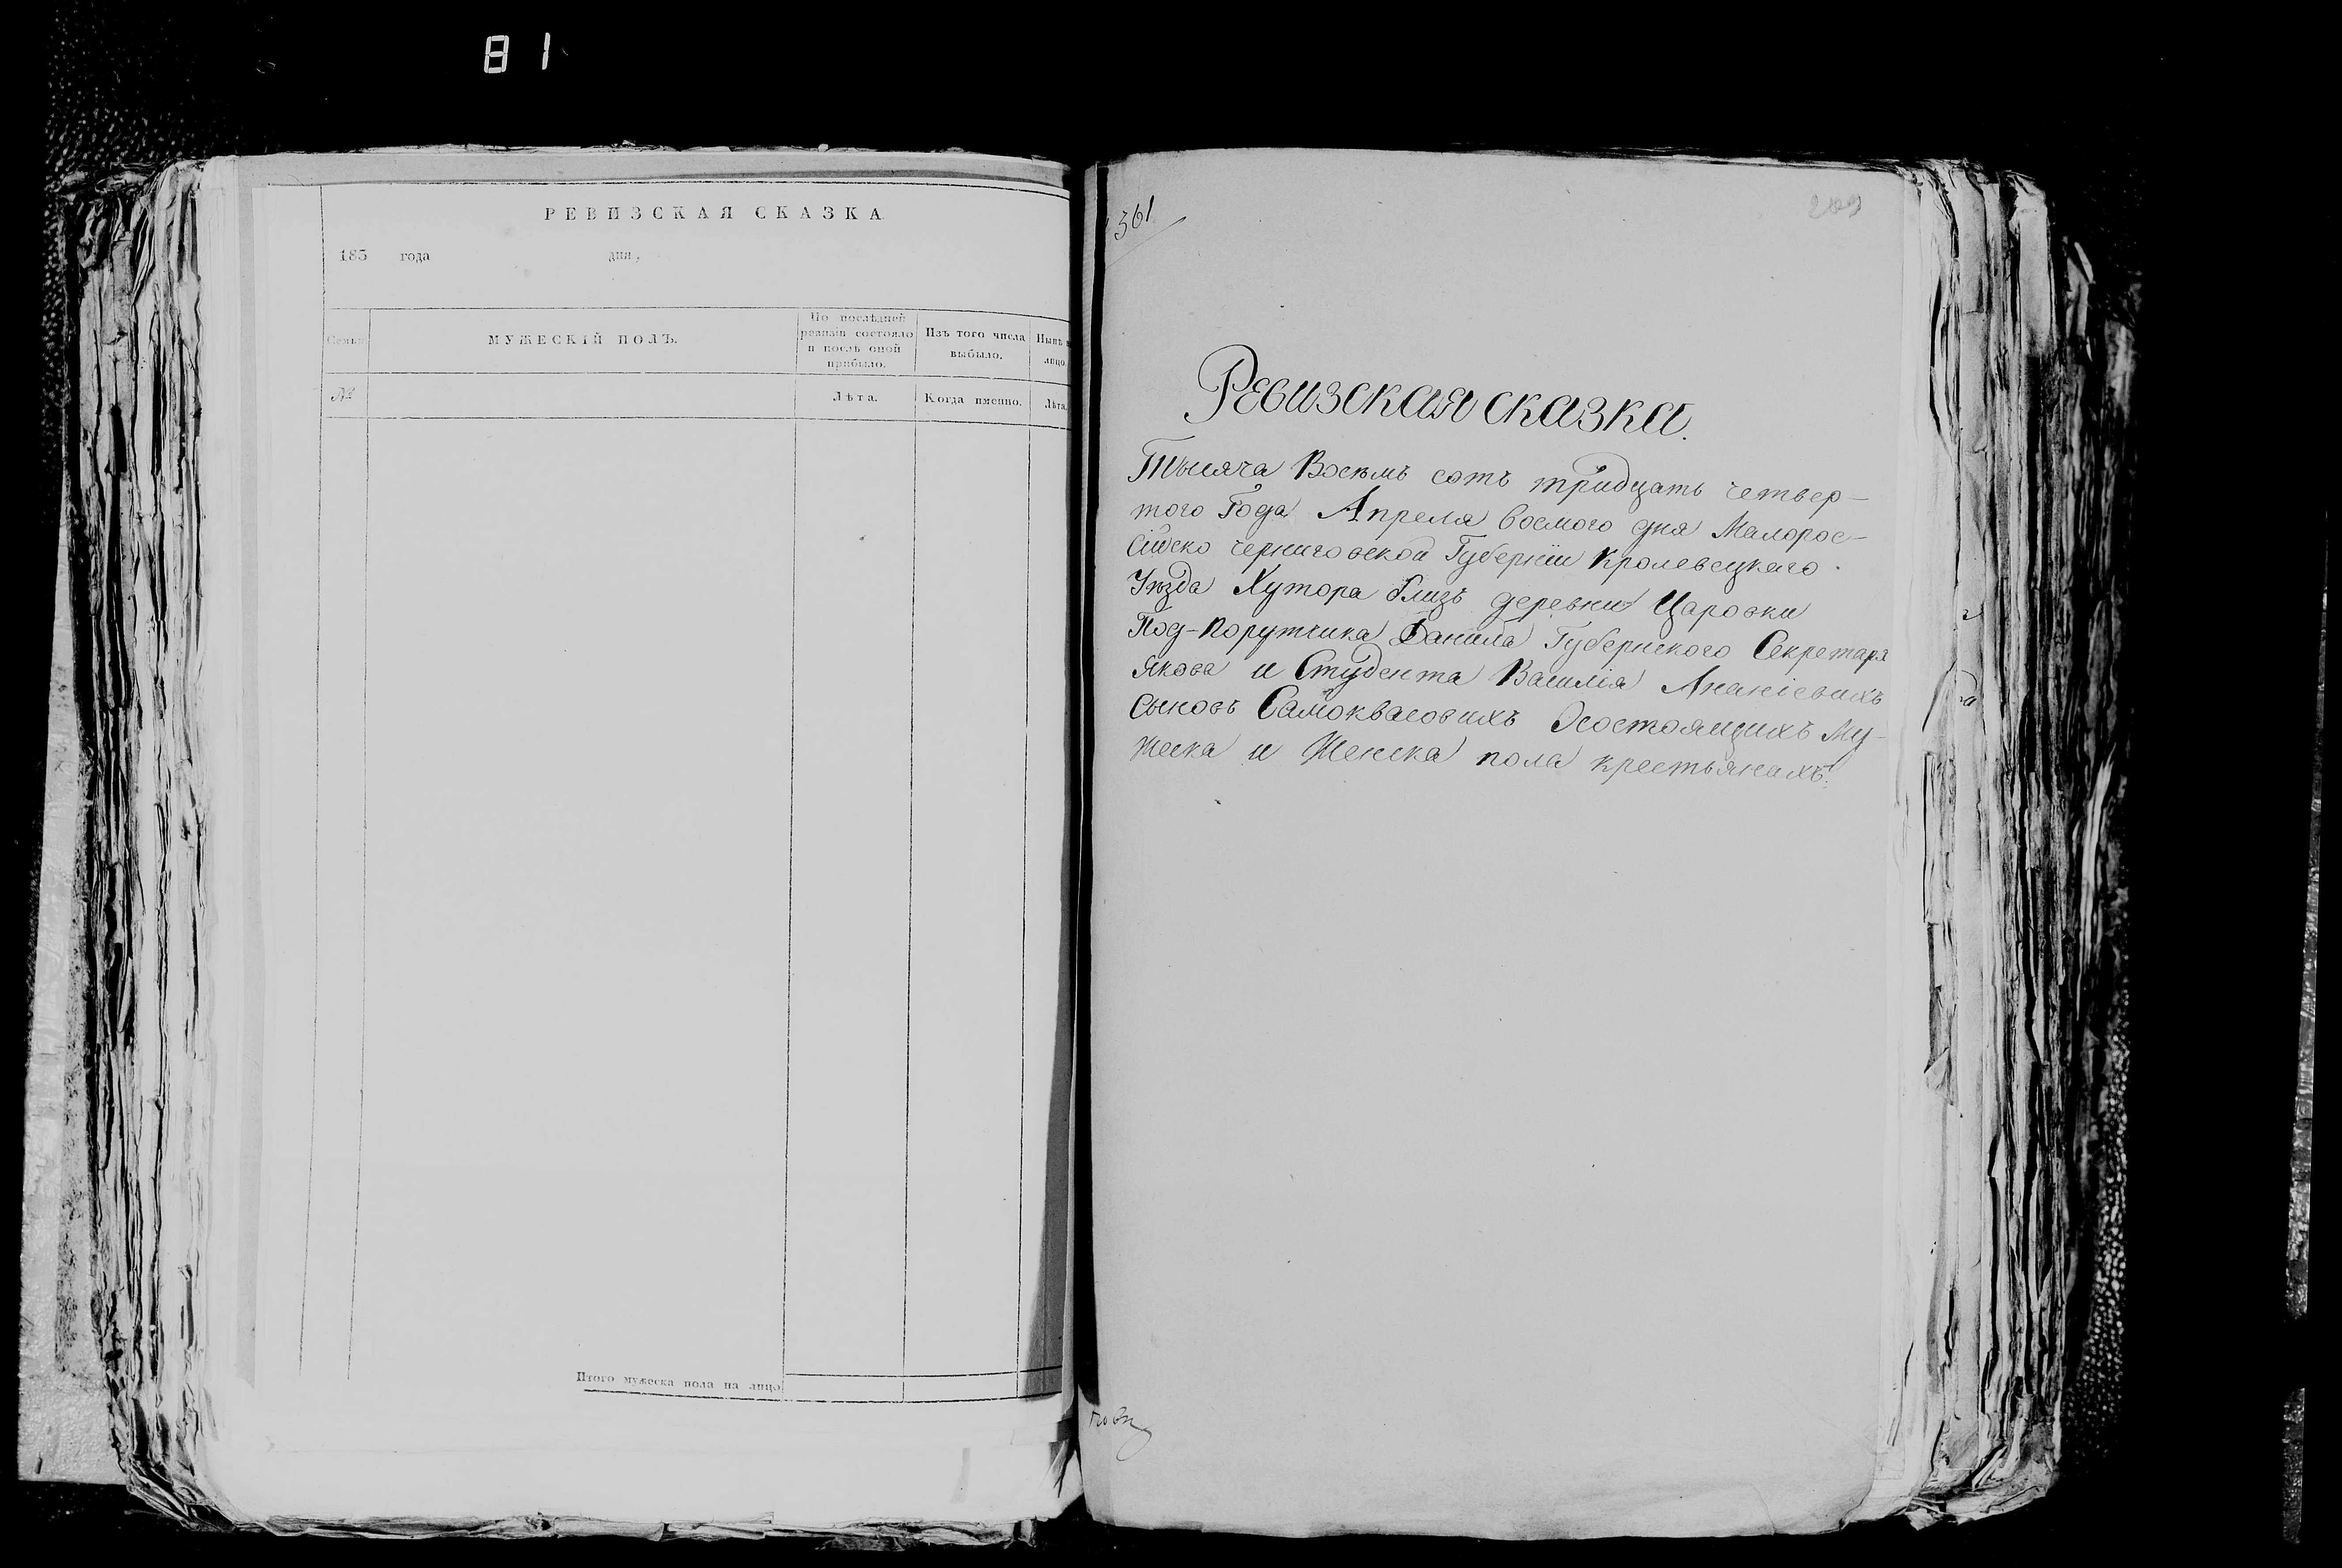 81
РЕВИЗСКАЯ СКАЗКА
183 года дня,
Семьи
МУЖЕСКІЙ ПОЛЪ.
По послѣдней
ревизіи состояло
и послѣ оной
прибыло.
Изъ того числа
выбыло.
Нынѣ
лицо
№
Лѣта.
Когда именно.
Лѣта.
Итого мужеска пола на лицо
361
Ревизская сказка.
Тысяча Восемь сотъ тридцать четвер-
того Года Апреля восмого дня Малорос-
сійско черниговской Губерніи Кролевецкаго
Уѣзда Хутора близъ деревни Царовки
Под-Порутчика Данила Губернского Секретаря
Якова и Студента Василія Ананіевихъ
Сыновъ Самоквасовихъ Осостоящихъ Му-
жеска и Женска пола крестьянахъ.